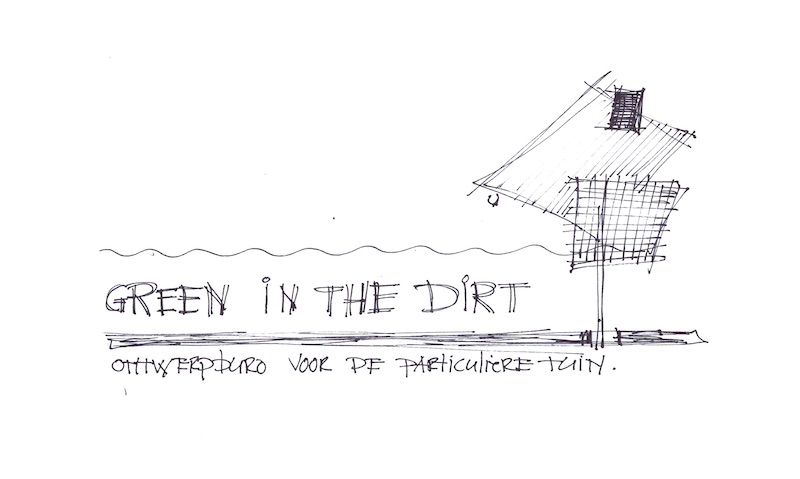 GREEN IN THE DIRT
ONTWERPBURO VOOR DE PARTICULIERE TUIN.